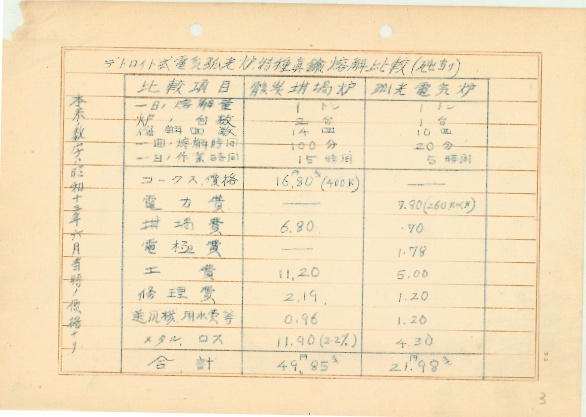 デトロイト式電気弧光炉特種真鍮熔解比較(砲身)
比較項目 骸炭坩堝炉 弧光電気炉
一日ノ熔解量 1トン 1トン
炉ノ台数 2台 1台
熔解回数 14回 10回
一回ノ熔解時間 100分 20分
一日ノ作業時間 15時間 5時間
コークス価格 16円80銭(400K) ——
電力費 —— 7.80(260KWH)
坩堝費 6.80 .70
電極費 —— 1.78
工費 11.20 5.00
修理費 2.19 1.20
送風機用水費等 0.96 1.20
メタルロス 11.90(2.2%) 4.30
合計 49円85銭 21円98銭
本表ノ数字ハ昭和十三年六月当時ノ価格ナリ
3